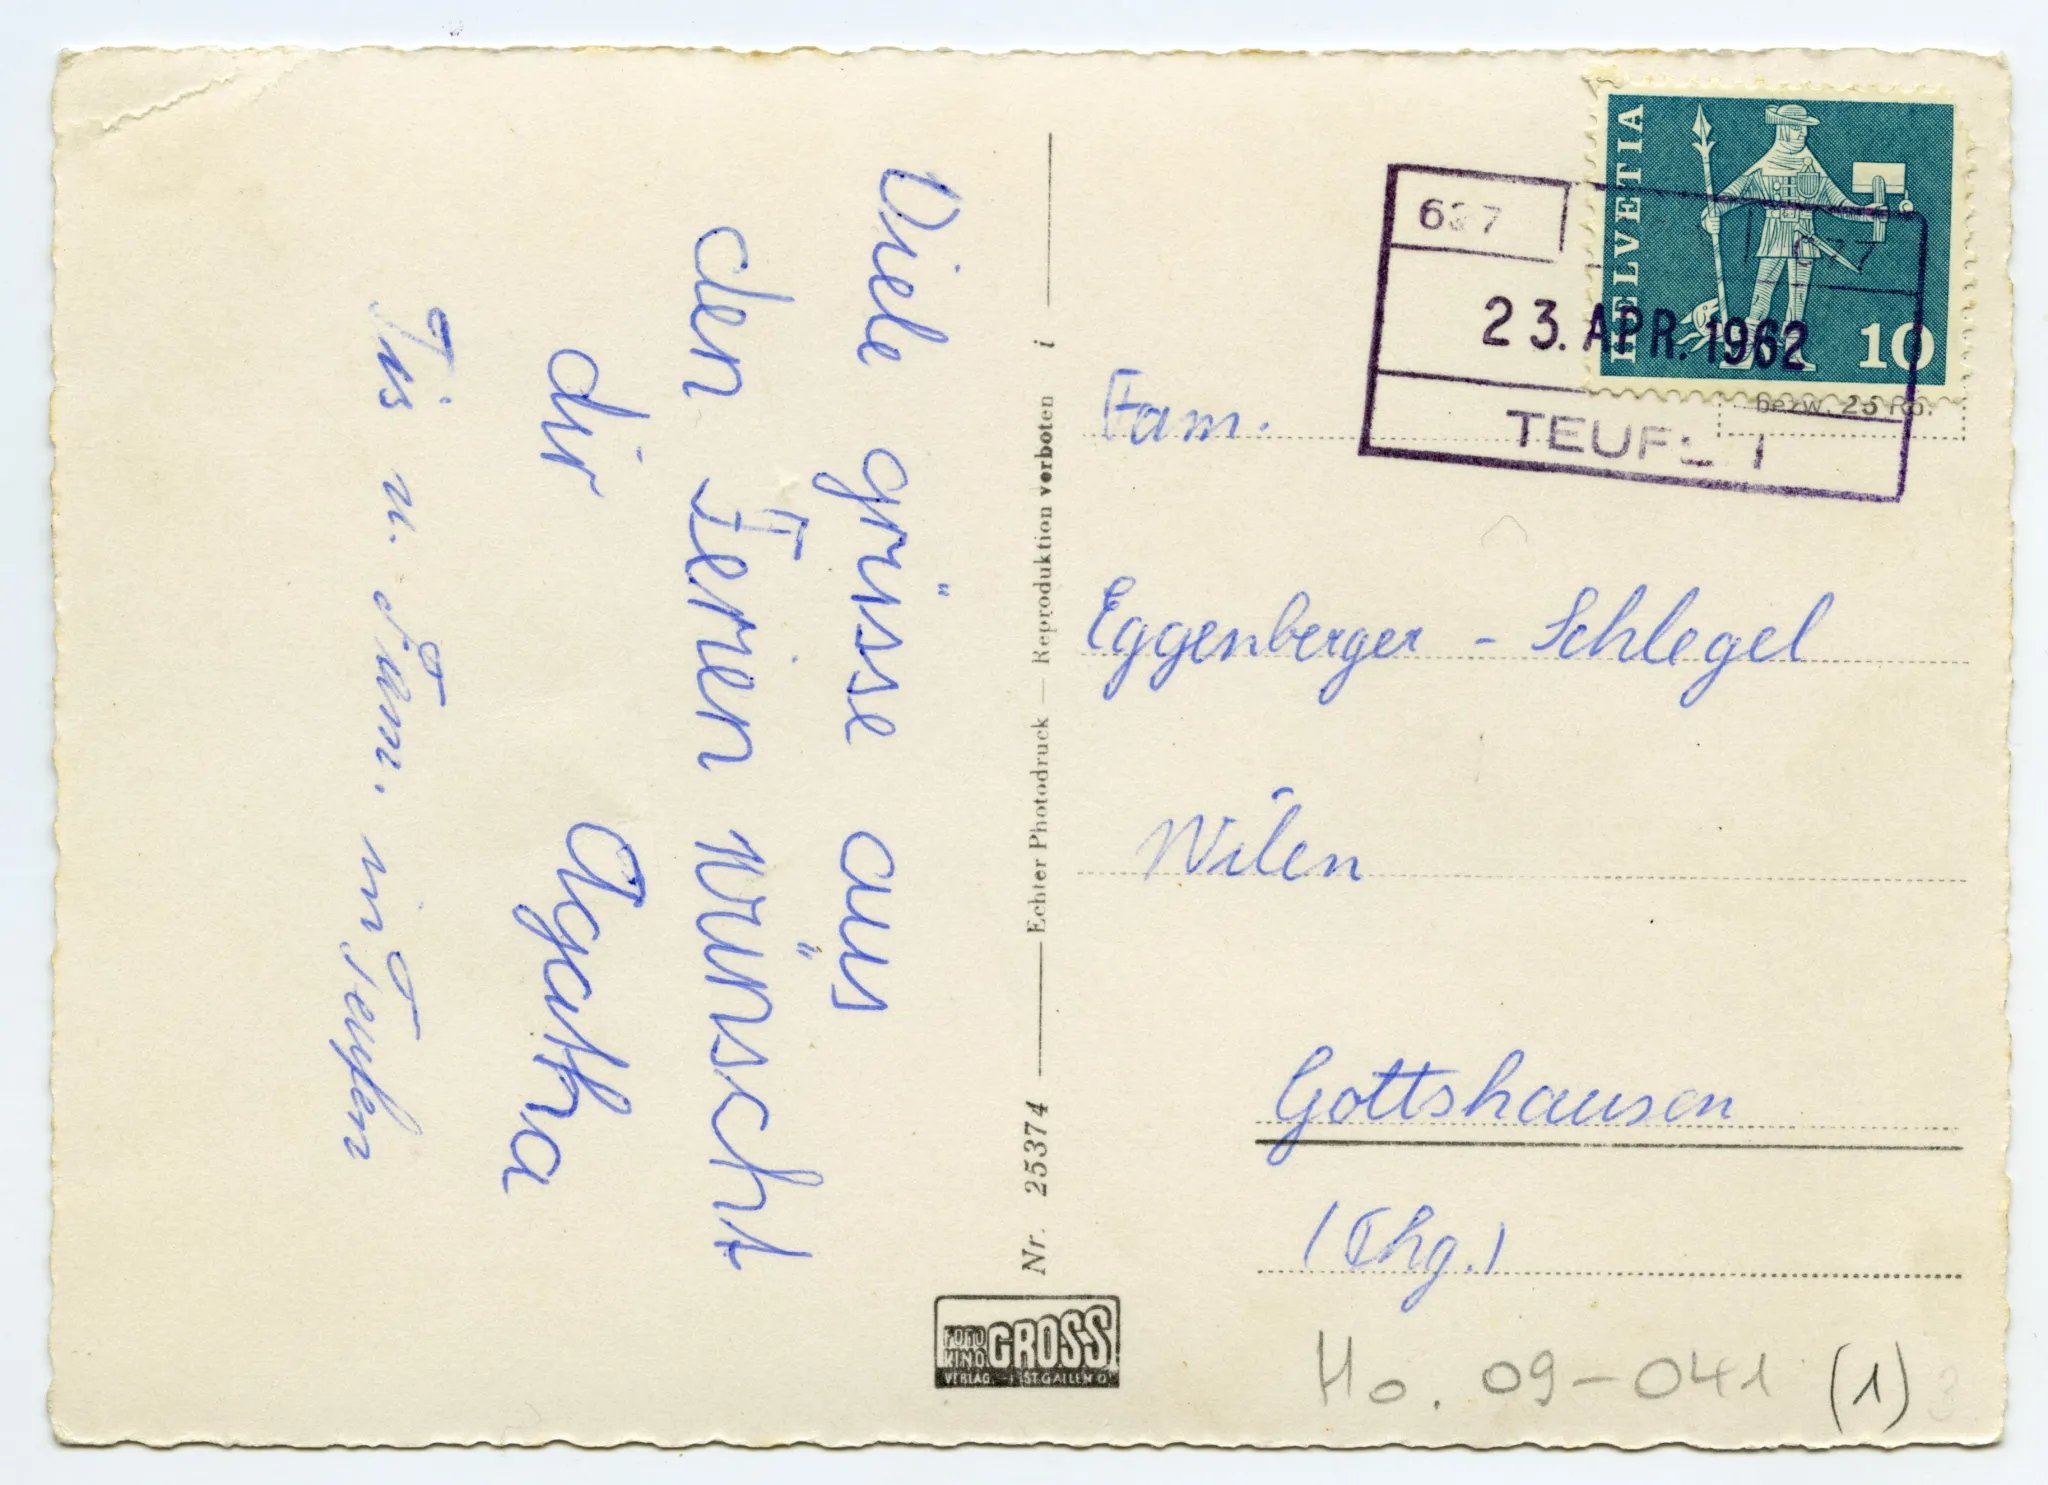 Viele grüsse aus
den Ferien wünscht
dir Agatha
u. Fam. in Teufen
Nr. 25374 — Echter Photodruck — Reproduktion verboten i
FOTO KINO GROSS
VERLAG ST GALLEN
HELVETIA
10
23. APR. 1962
TEUFEN
bezw. 25 Rp.
Fam.
Eggenberger - Schlegel
Wilen
Gottshausen
(Thg.)
Ho. 09-041 (1)